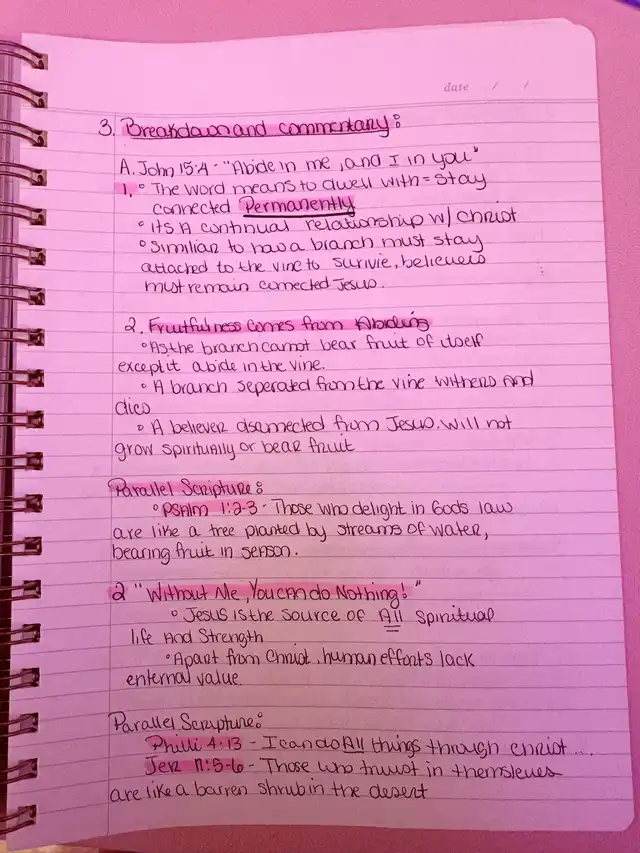 date / /
3. Breakdown and commentary:
A. John 15:4 - "Abide in me, and I in you"
1. ° The word means to dwell with = stay
connected Permanently
° its A continual relationship w/ Christ
° Similiar to how a branch must stay
attached to the vine to survie, believers
must remain connected Jesus.
2. Fruitfulness comes from Abiding
° As the branch cannot bear fruit of itself
except it abide in the vine.
° A branch seperated from the vine withers and
dies
° A believer disconnected from Jesus. will not
grow spiritually or bear fruit
Parallel Scripture:
° PSAlm 1:2-3 - Those who delight in Gods law
are like a tree planted by streams of water,
bearing fruit in season.
2 "Without Me, You can do Nothing!"
° Jesus is the source of All Spiritual
life And Strength
° Apart from Christ, human efforts lack
enternal value
Parallel Scripture:
Philli 4:13 - I can do All things through christ ....
Jer 17:5-6 - Those who trust in themsleves
are like a barren shrub in the desert